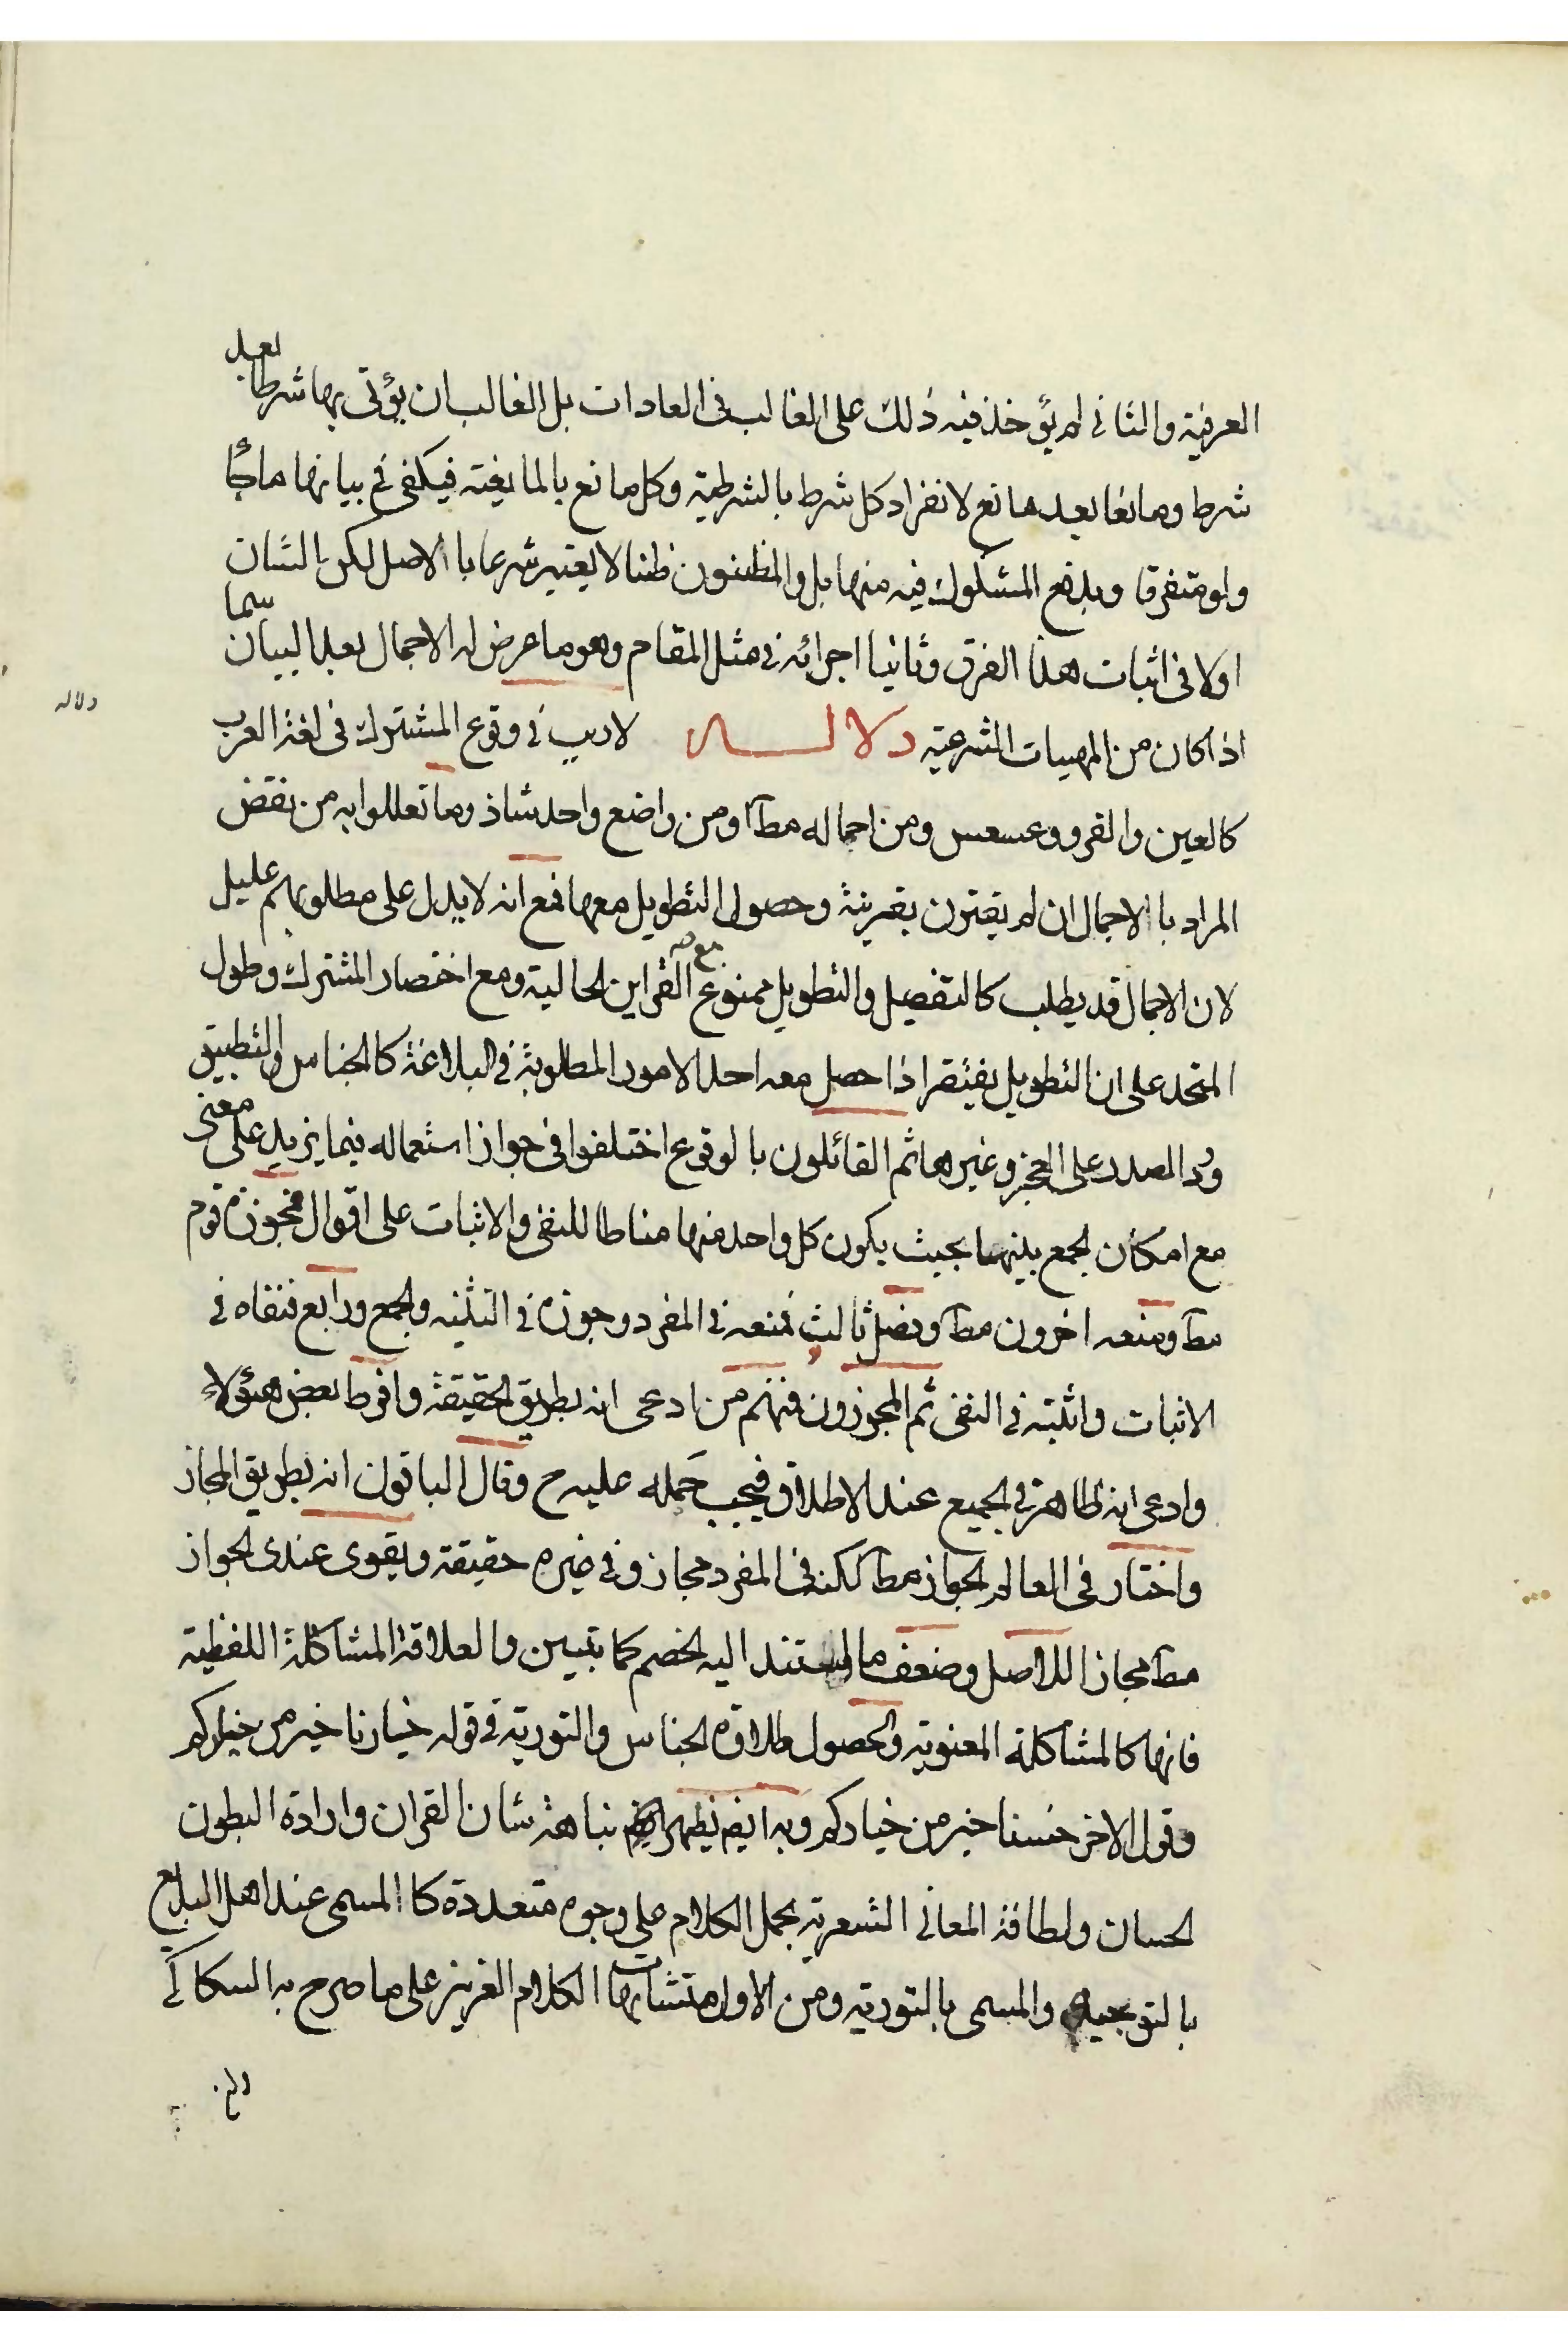 العرفية والثاني لم يؤخذ فيه ذلك على الغالب في العادات بل الغالب ان يؤتى بها شرطا بعد
شرط ومانعا بعد مانع لانفراد كل شرط بالشرطية وكل مانع بالمانعية فيكفي في بيانها
ولو متفرقا ويدفع المشكوك فيه منها بل والمظنون ظنا لا يعتبر شرعا با الاصل لكن الشان
اولا في اثبات هذا الفرق وثانيا اجرائه في مثل المقام وهو ما عرض له الاجمال بعد البيان سيما
اذا كان من المهيات الشرعية دلالـــه لا ريب في وقوع المشترك في لغة العرب
كالعين والقرو وعسعس ومن احماله مطآ ومن واضع واحد شاذ وما تعللوا به من نقض
المراد با الاجمال ان لم يقترن بقرينة وحصول التطويل معها فمع انه لا يدل على مطلوبهم عليل
لان الاجمال قد يطلب كالتفصيل والتطويل ممنوع مع القراين الحالية ومع اختصار المشترك وطول
المتحد على ان التطويل يفتقر اذا حصل معه احد الامور المطلوبة في البلاغة كالجناس والتطبيق
ورد الصدر على العجز وغيرها ثم القائلون با لوقوع اختلفوا في جواز استعماله فيما يزيد على معنى
مع امكان الجمع بينهما بحيث يكون كل واحد منها مناطا للنفي والاثبات على اقوال فجوزه قوم
مطآ ومنعه اخرون مطآ وفصل ثالث فمنعه في المفرد وجوزه في التثنيه والجمع ورابع فنفاه في
الاثبات واثبته في النفي ثم المجوزون فمنهم من ادعى انه بطريق الحقيقة وافرط بعض هؤلاء
وادعى انه ظاهر في الجميع عند الاطلاق فيجب حَمله عليه ح وقال الباقون انه بطريق المجاز
واختار في المعالم الجواز مطآ لكنه في المفرد مجاز وفي غيره حقيقة ويقوى عندى الجواز
مطآ مجازا للاصل وضعف ما استند اليه الخصم كما يتبين والعلاقة المشاكلة اللفظية
فانها كالمشاكلة المعنوية والحصول طلاوة الجناس والتورية في قوله خيارنا خير من خياركم
وقول الاخر خسنا خير من خياركم وبه ايضم يظهر نباهة شان القران وارادة البطون
الحسان ولطافة المعاني الشعرية بحمل الكلام على وجوه متعددة كا المسمى عند اهل البديع
بالتوجيه والمسمى بالتورية ومن الاول متشابهات الكلام العزيز على ما صرح به السكاكي
دلاله